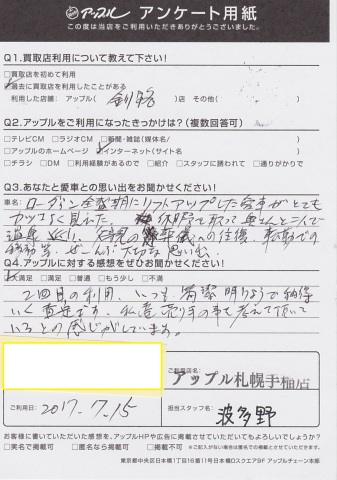 アップル アンケート用紙
この度は当店をご利用いただきありがとうございました。
Q1.買取店利用について教えて下さい!
□買取を初めて利用
□過去に買取店を利用したことがある
利用した店舗: アップル( 釧路 )店 その他( )
Q2.アップルをご利用になったきっかけは?(複数回答可)
□テレビCM □ラジオCM □新聞・雑誌(媒体名/ )
□アップルのホームページ □インターネット(サイト名 )
□チラシ □DM □利用経験があるので □紹介 □スタッフに誘われて □通りがかりで
Q3.あなたと愛車との思い出をお聞かせください!
車名:
リフトアップした愛車がとても
カッコよく見えた。 休暇を取って奥さんと二人で
への往復、転勤での
ぜーんぶ大切な思い出。
Q4.アップルに対する感想をぜひお聞かせください!
□大満足 □満足 □普通 □もう少し □不満
2回目の利用、いつも 明りょうで納得
いく査定です。私達売り手の事を考えて頂いて
いるとの感じがしています。
ご利用店名:
アップル札幌手稲店
ご利用日: 2017.7.15
担当スタッフ名: 波多野
お客様に書いていただいた感想を、アップルHPや広告に掲載させていただいてもよろしいでしょうか?
□実名で掲載可 □匿名なら掲載可 □掲載不可 ※ご記入がない場合は匿名で掲載させていただく場合がございます。
東京都中央区日本橋1丁目16番11号日本橋Dスクエア9F アップルチェーン本部